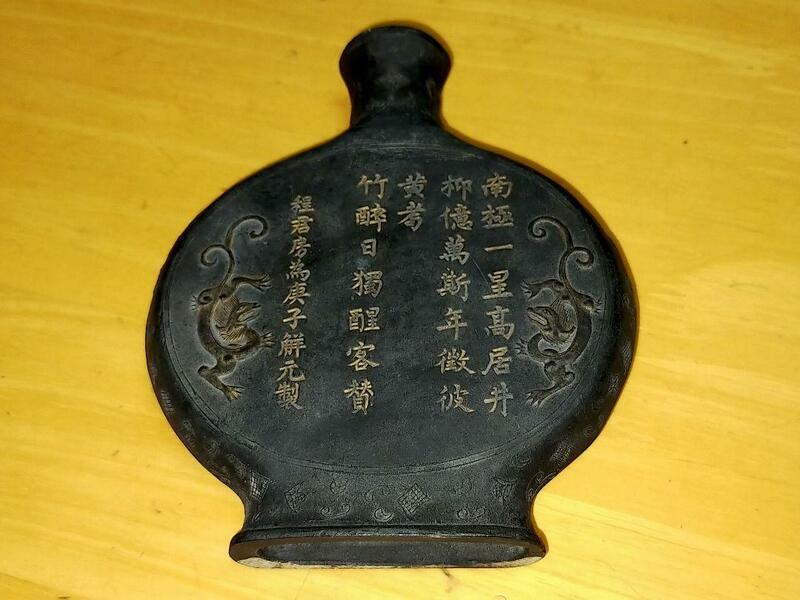 南極一星高居井
抑億萬斯年徵彼
黃耈
竹醉日獨醒客贊
程君房為庚子解元製